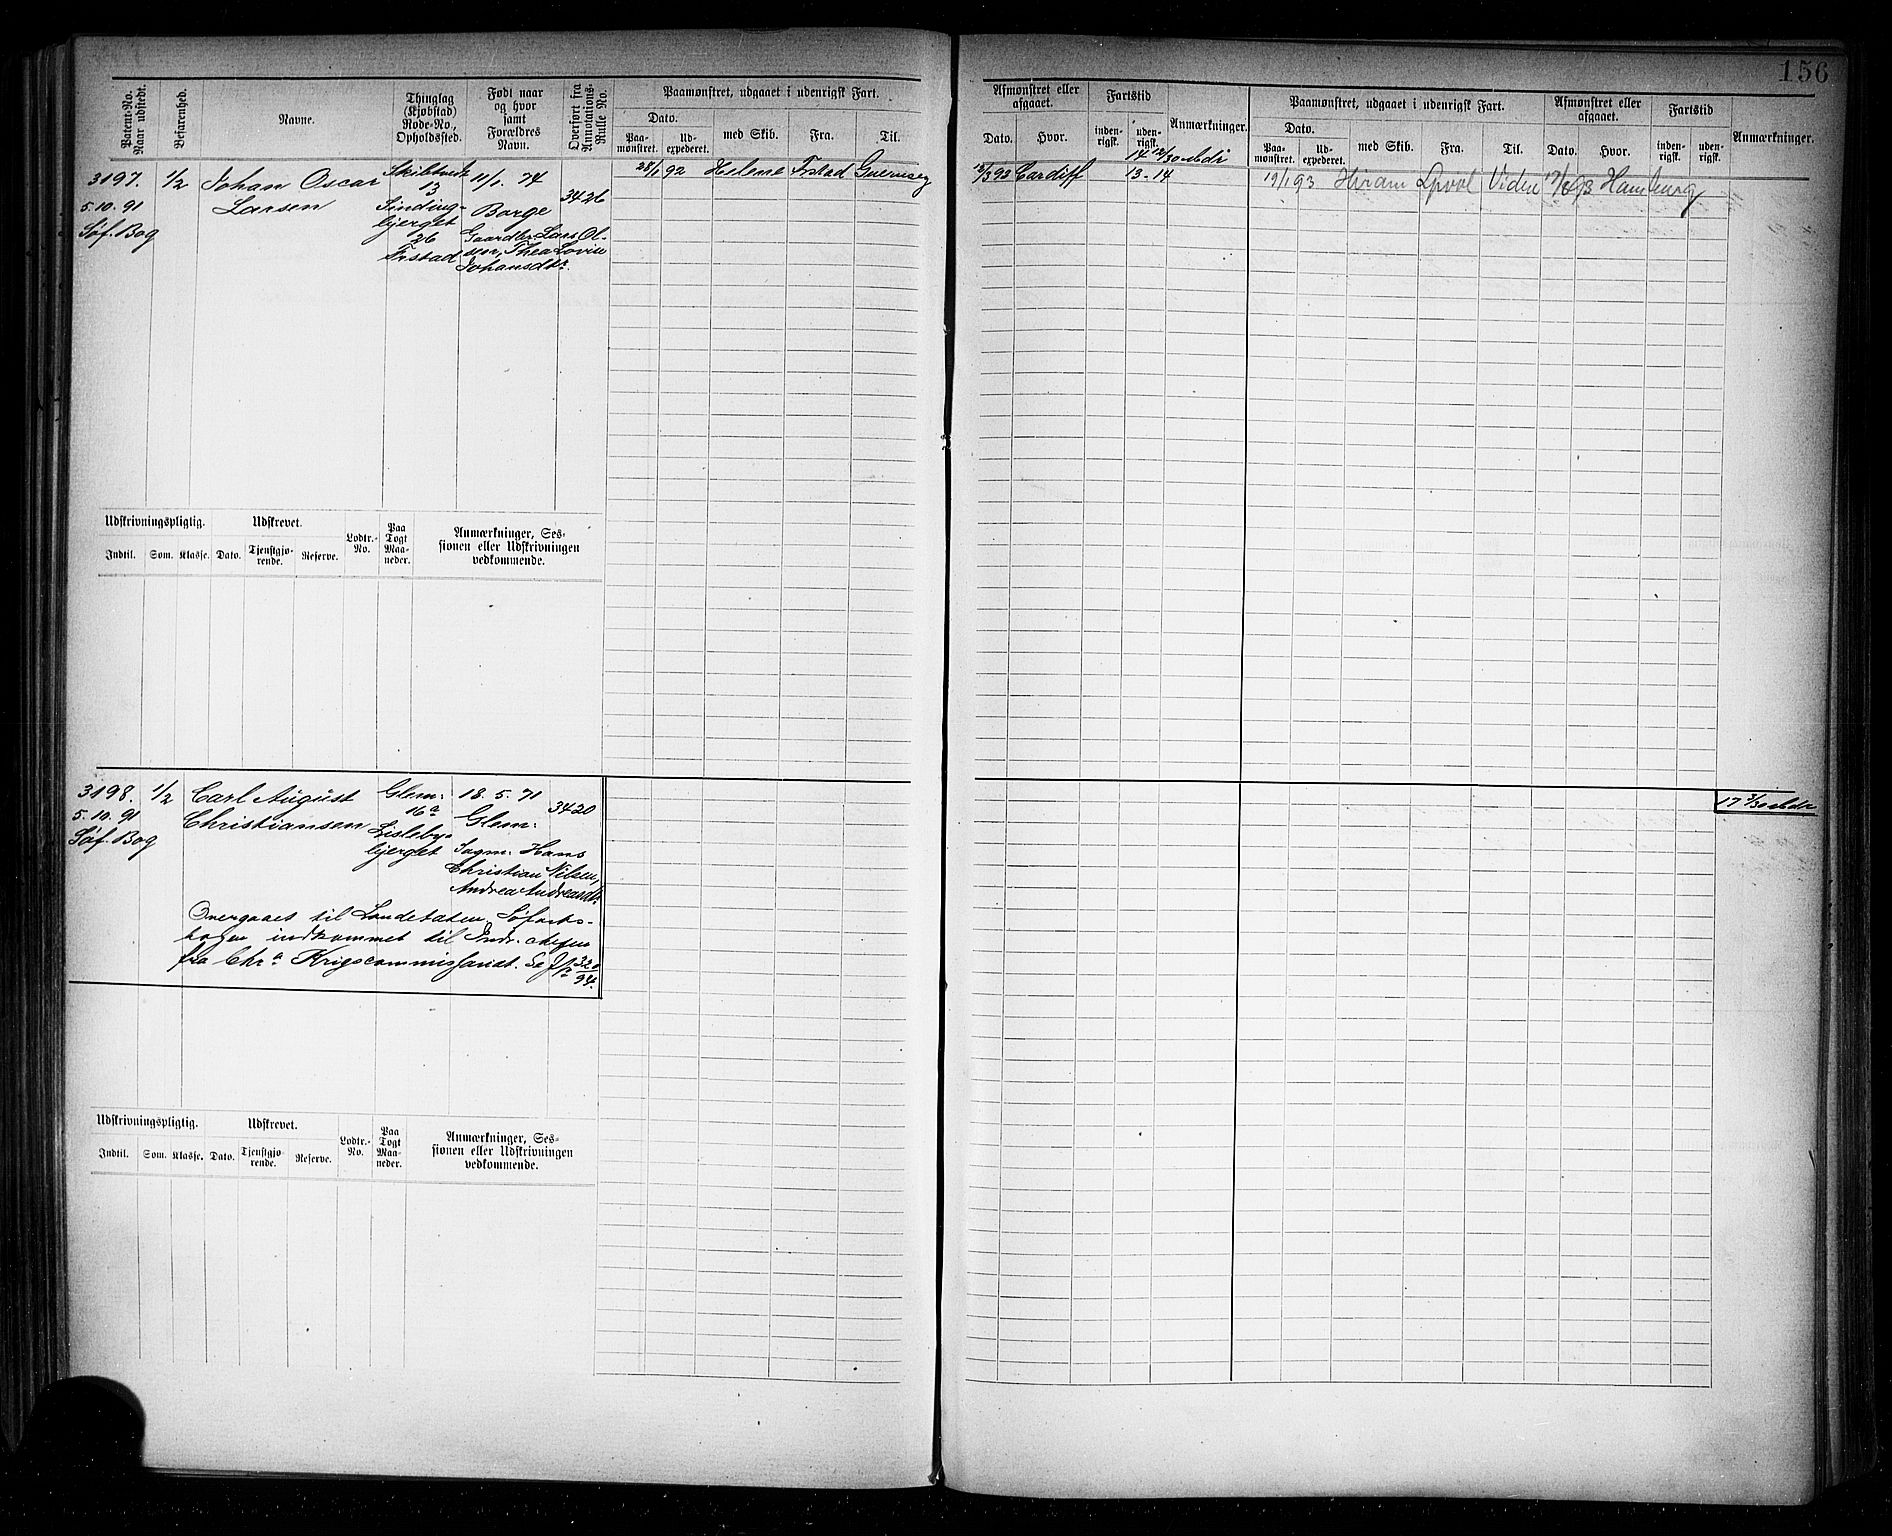 156
Patent-No. Naar udstedt.
Befarenhed.
Navne.
Thinglag (Kjøbstad) Rode-No., Opholdssted.
Født naar og hvor samt Forældres Navn.
Overført fra Annotations-Rulle No.
Paamønstret, udgaaet i udenrigsk Fart.
Dato.
Paamønstret.
Udexpederet.
med Skib.
Fra.
Til.
Afmønstret eller afgaaet.
Dato.
Hvor.
Fartstid
indenrigsk.
udenrigsk.
Anmærkninger.
Paamønstret, udgaaet i udenrigsk Fart.
Dato.
Paamønstret.
Udexpederet.
med Skib.
Fra.
Til.
Afmønstret eller afgaaet.
Dato.
Hvor.
Fartstid
indenrigsk.
udenrigsk.
Anmærkninger.
3197.
5.10.91
Søf. Bog
1/2
Johan Oscar
Larsen
Skibtvedt
13
Sinding-
bjerget
26
Frstad
11/1. 74
Borge
Gaardbr. Lars Ol-
sen, Thea Lovise
Johansdtr.
3426
28/1 92 Helene Frstad Guernsey
12/3 92 Cardiff 13-14
14 12/30 Mdr
19/1 93 Hiram Lpool 93 Hamburg
Udskrivningspligtig.
Indtil.
Som.
Klasse.
Udskrevet.
Dato.
Tjenstgjørende.
Reserve.
Lodtr.-No.
Paa Togt Maaneder.
Anmærkninger, Ses-
sionen eller Udskrivningen
vedkommende.
3198.
5.10.91
Søf. Bog
1/2
Carl August
Christiansen
Glem:
16a
Lisleby-
bjerget
18. 5. 71
Glem:
Sagm. Hans
Christian Nilsen,
Andrea Andreasdtr.
3420
17 3/30 Mdr
Overgaaet til Landetaten, Søfarts-
bogen indkommet til Indr. chefen
fra Chra Krigscommissariat. Se Jr 320/94.
Udskrivningspligtig.
Indtil.
Som.
Klasse.
Udskrevet.
Dato.
Tjenstgjørende.
Reserve.
Lodtr.-No.
Paa Togt Maaneder.
Anmærkninger, Ses-
sionen eller Udskrivningen
vedkommende.